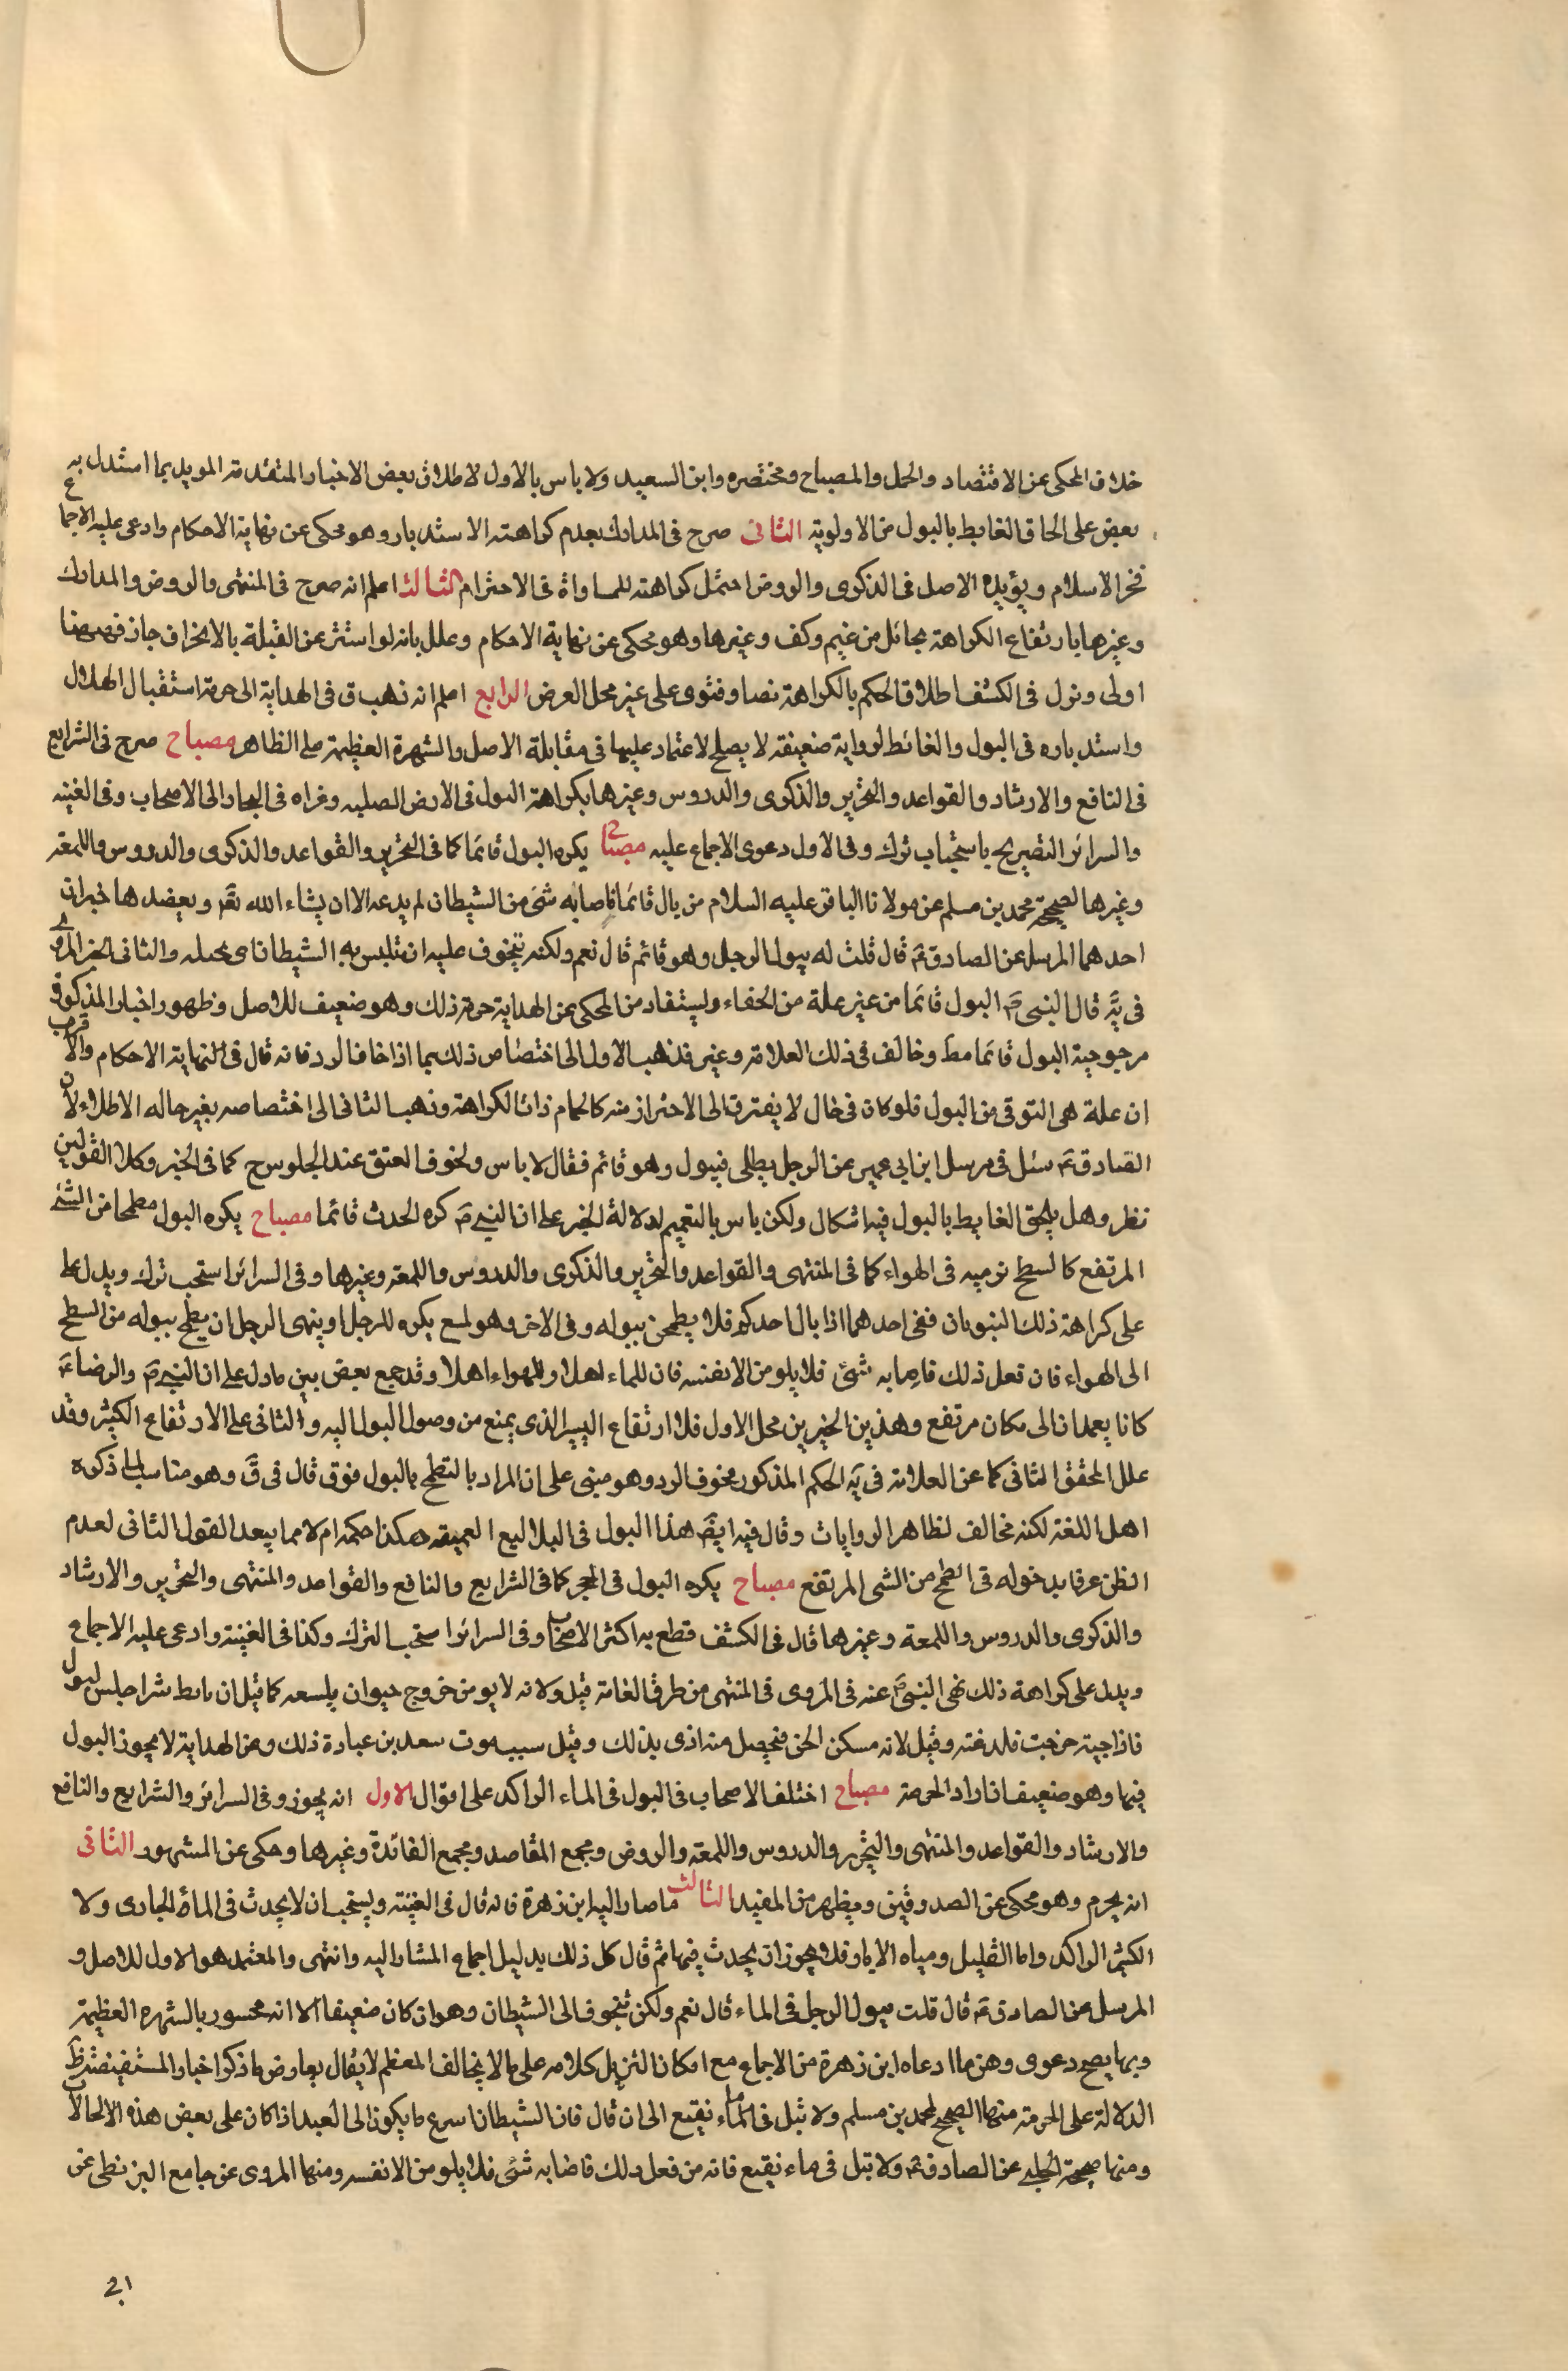 خلاف المحكى عن الاقتصاد والجمل والمصباح ومختصره وابن السعيد ولا باس بالاول لاطلاق بعض الاخبار المتقدمة المويد بما استدل به
بعض على الحاق الغايط بالبول من الاولوية الثانى صرح فى المدارك بعدم كراهته الاستدبار وهو محكى عن نهاية الاحكام وادعى عليه الاجماع
فخر الاسلام ويؤيده الاصل فى الذكرى والروض احتمل كراهته للمساواة فى الاحترام الثالث اعلم انه صرح فى المنتهى والروض والمدارك
وغيرها بارتفاع الكراهة بحائل من غيم وكف وغيرها وهو محكى عن نهاية الاحكام وعلل بانه لو استتر عن القبلة بالانحراف جاز فههنا
اولى ونزل فى الكشف اطلاق الحكم بالكراهة نصا وفتوى على غير محل العرض الرابع اعلم انه ذهب ق فى الهداية الى حرمة استقبال الهلال
واستدباره فى البول والغائط لرواية ضعيفة لا يصلح لاعتماد عليها فى مقابلة الاصل والشهرة العظيمة على الظاهر مصباح صرح فى الشرايع
فى النافع والارشاد والقواعد والتحرير والذكرى والدروس وغيرها بكراهة البول فى الارض الصلبه وعزاه فى البحار الى الاصحاب وفى الغنيه
والسرائر التصريح باستحباب ترك وفى الاول دعوى الاجماع عليه مصباح يكره البول قائما كما فى التحرير والقواعد والذكرى والدروس واللمعة
وغيرها لصحيحة محمد بن مسلم عن مولانا الباقر عليه السلام من بال قائما فاصابه شئ من الشيطان لم يدعه الا ان يشاء الله تعٓ ويعضدها خبران
احدهما المرسل عن الصادق عٓ قال قلت له يبول الرجل وهو قائم قال نعم ولكنه يتخوف عليه ان تلبس به الشيطان اى يخبله والثانى الخبر المروى
فى يٓه قال النبى صٓ البول قائما من غير علة من الجفاء وليستفاد من المحكى عن الهداية حرمة ذلك وهو ضعيف للاصل وظهور اخبار المذكورة فى
مرجوحية البول قائما مط وخالف فى ذلك العلامة وغير فذهب الاول الى اختصاص ذلك بما اذا خاف الرد فانه قال فى النهاية الاحكام والاقرب
ان علة هى التوقى من البول فلو كان فى حال لا يفترق الى الاحتراز منه كالحمام زالت الكراهة وذهب الثانى الى اختصاصه بغير حاله الاطلاء لان
الصادق عٓ سئل فى مرسل ابن ابى عمير عن الرجل يطلى فيبول وهو قائم فقال لا باس ولخوف الفتق عند الجلوس ح كما فى الخبر وكلا القولين
نظر وهل يلحق الغايط بالبول فيه اشكال ولكن باس بالتعميم لدلالة الخبر على ان النبى صٓ كره الحدث قائما مصباح يكره البول مطمحا من الشئ
المرتفع كالسطح نرميه فى الهواء كما فى المنتهى والقواعد والتحرير والذكرى والدروس واللمعة وغيرها وفى السرائر استحب ترك ويدل على
على كراهة ذلك النبويان ففى احدهما اذا بال احدكم فلا يطمحن ببوله وفى الاخر وهو لمسع يكره للرجل او ينهى الرجل ان يطمح ببوله من السطح
الى الهواء فان فعل ذلك فاصابه شئ فلا يلومن الا نفسه فان للماء اهلا وللهواء اهلا وقد جمع بعض بين ما دل على ان النبى صٓ والرضا عٓ
كانا يعمدان الى مكان مرتفع وهذين الخبرين محل الاول فلا ارتفاع اليسير الذى يمنع من وصول البول اليه والثانى على الارتفاع الكثير وقد
علل المحقق الثانى كما عن العلامة فى يٓه الحكم المذكور بخوف الرد وهو مبنى على ان المراد بالتطمح بالبول فوق قال فى قٓ وهو مناسب لما ذكره
اهل اللغة لكنه مخالف لظاهر الروايات وقال فيه ايضٓ هذا البول فى البلاليع العميقه هكذا حكمه ام لا مما يبعد القول الثانى لعدم
الظن عرفا بدخوله فى الطمح من الشى المرتفع مصباح يكره البول فى الحجر كما فى الشرايع والنافع والقواعد والمنتهى والتحرير والارشاد
والذكرى والدروس واللمعة وغيرها قال فى الكشف قطع به اكثر الاصحاب وفى السرائر استحب الترك وكذا فى الغنية وادعى عليه الاجماع
ويدل على كراهة ذلك نهى النبى صٓ عنه فى المروى فى المنتهى من طرق العامة قيل ولانه لا يومن خروج حيوان يلسعه كما قيل ان تابط شرا جلس لبول
فاذا حية خرجت فلدغته وقيل لانه مسكن الجن فيحصل منه اذى بذلك وقيل سبب موت سعد بن عبادة ذلك وعن الهداية لا يجوز البول
فيها وهو ضعيف اذا اراد الحرمة مصباح اختلف الاصحاب فى البول فى الماء الراكد على اقوال الاول انه يجوز وفى السرائر والشرايع والنافع
والارشاد والقواعد والمنتهى والتحرير والدروس واللمعة والروض ومجمع المقاصد ومجمع الفائدة وغيرها وحكى عن المشهور الثانى
انه يحرم وهو محكى عن الصدوقين ويظهر من المفيد الثالث ما صار اليه ابن زهرة فانه قال فى الغنية ويستحب ان لا يحدث فى الماء الجارى ولا
الكثير الراكد واما القليل ومياه الابار فلا يجوز ان يحدث فيها ثم قال كل ذلك بدليل اجماع المشار اليه وانتهى والمعتمد هو الاول للاصل و
المرسل عن الصادق عٓ قال قلت يبول الرجل فى الماء قال نعم ولكن تتخوف الى الشيطان وهو ان كان ضعيفا الا انه مجسور بالشهره العظيمة
وبها يصح دعوى وهن ما ادعاه ابن زهرة من الاجماع مع امكان التنزيل كلامه على ما لا يخالف المعظم لا يقال يعارض ما ذكر اخبار المستفيضة ظ
الدلالة على الحرمة منها الصحيح لمحمد بن مسلم ولا تبل فى الماء نقيع الى ان قال فان الشيطان اسرع ما يكون الى العبد اذا كان على بعض هذه الالحالات
ومنها صحيحة الحلبى عن الصادق عٓ ولا تبل فى ماء نقيع فانه من فعل ذلك فاصابه شئ فلا يلومن الا نفسه ومنها المروى عن جامع البزنطى عن